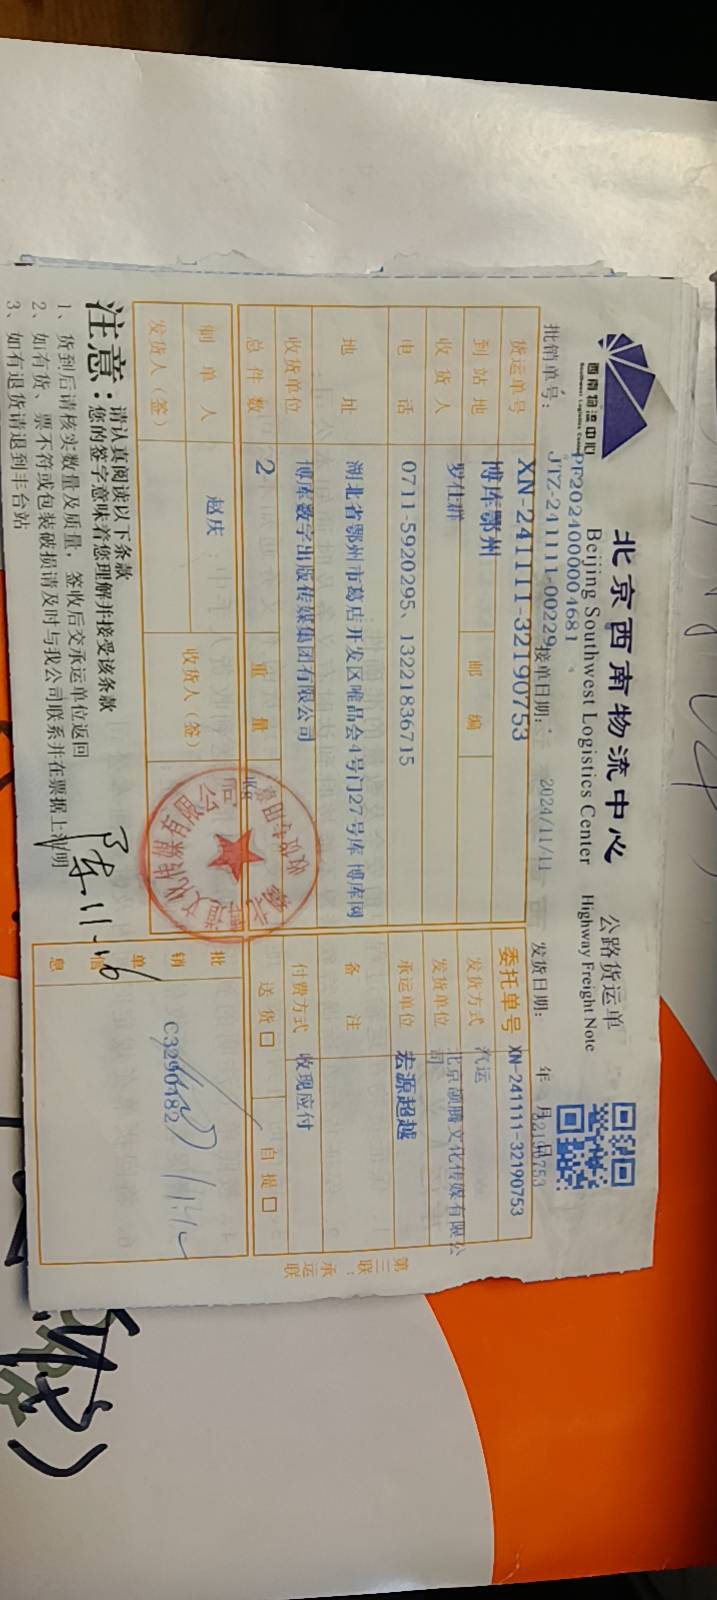 西南物流中心
Southwest Logistics Center
北京西南物流中心 公路货运单
Beijing Southwest Logistics Center Highway Freight Note
PF2024000004681
批销单号: JTZ-241111-00229 接单日期: 2024/11/11 发货日期: 年 月 日
货运单号 XN-241111-32190753 委托单号 XN-241111-32190753
到站地 博库鄂州 邮编 发货方式 汽运
收货人 罗仕群 发货单位 北京颉腾文化传媒有限公司
电话 0711-5920295、13221836715 承运单位 宏源超越
地址 湖北省鄂州市葛店开发区唯品会4号门27号库 博库网 备注
收货单位 博库数字出版传媒集团有限公司 付费方式 收现应付
总件数 2 重量 送货□ 自提□
制单人 赵庆 收货人(签) 批销单信息 C3290482
发货人(签)
注意: 请认真阅读以下条款
您的签字意味着您理解并接受该条款
1、货到后请核实数量及质量, 签收后交承运单位返回
2、如有货、票不符或包装破损请及时与我公司联系并在票据上注明
3、如有退货请退到丰台站
第三联:承运联
文化传媒有限公司
收货专用章